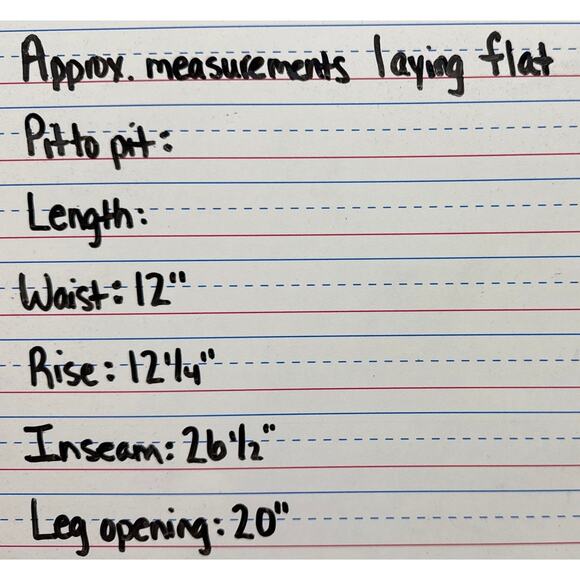 Approx. measurements laying flat
Pit to pit:
Length:
Waist: 12"
Rise: 12 1/4"
Inseam: 26 1/2"
Leg opening: 20"